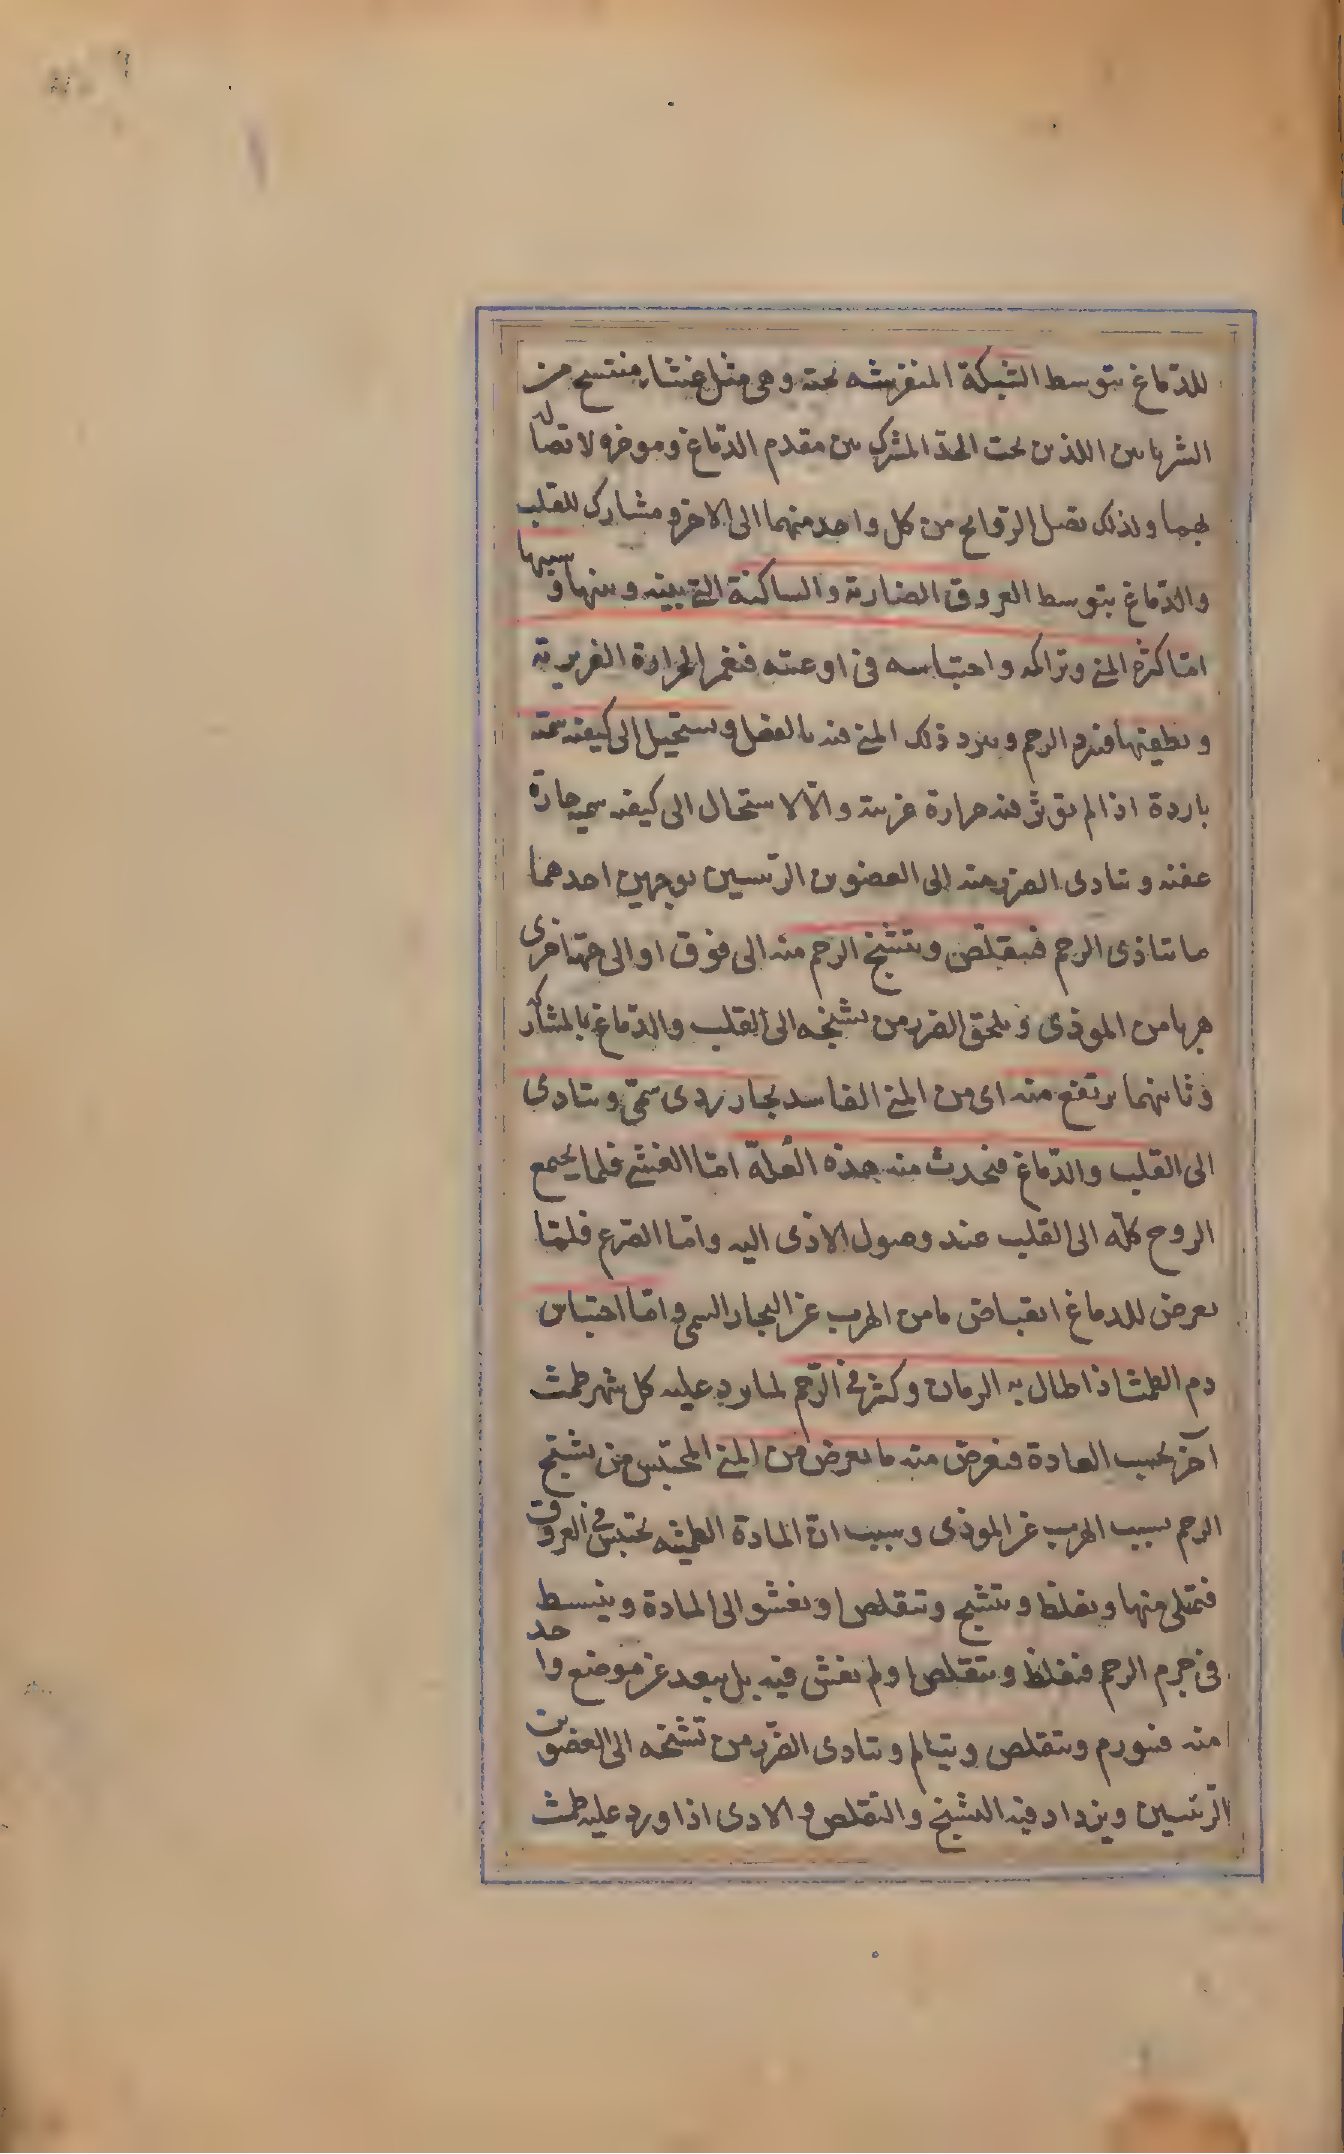 للدماغ بتوسط الشبكة المنفرشه تحته وهى مثل غشاء منتسج من
الشريانين اللذين تحت الحد المشترك بين مقدم الدماغ وموخره لاتصاله
بهما ولذلك تصل الروائح من كل واحد منهما الى الاخر و مشارك للقلب
والدماغ بتوسط العروق الضاربة والساكنة التى بينه وبينها وسببها
امّا كثرة المنى وتراكمه واحتباسه فى اوعيته فيغمر الحرارة الغريزية
ويطفيها فيبرد الرحم ويبرد ذلك المنى فيه بالفعل ويستحيل الى كيفيه سمّيه
باردة اذا لم يؤثر فيه حرارة غريبة والّا لاستحال الى كيفيه سميه حارة
عفنه ويتادى الضرر منه الى العضوين الرئيسين بوجهين احدهما
ما يتاذى الرحم فيتقلّص ويتشنّج الرحم منه الى فوق او الى جهة اخرى
هربا من الموذى ويلحق الضرر من تشنّجه الى القلب والدّماغ بالمشاركه
وثانيهما يرتفع منه اى من المنى الفاسد بخار ردى سمّى ويتادى
الى القلب والدّماغ فيحدث منه هذه العلّة امّا الغشى فلما يجتمع
الروح كلّه الى القلب عند وصول الاذى اليه وامّا الصّرع فلمّا
يعرض للدماغ انقباض ما من الهرب عن البخار السمى وامّا احتباس
دم الطمث اذا طال به الزمان وكثر فى الرّحم لما يرد عليه كل شهر طمث
آخر بحسب العادة فيعرض منه ما يعرض من المنى المحتبس من تشنّج
الرحم بسبب الهرب عن الموذى وبسبب انّ المادة الطمثيه تحتبس فى العروق
فتمتلى منها ويغلظ ويتشنج ويتقلص او يفشو الى المادة وينبسط
فى جرم الرحم فيغلظ ويتقلص او لم يفش فيه بل يبعد عن موضع واحد
منه فيتورم ويتقلص ويتالم ويتادى الضّرر من تشنّجه الى العضوين
الرّئيسين ويزداد فيه التشنّج والتقلص والاذى اذا ورد عليه طمث